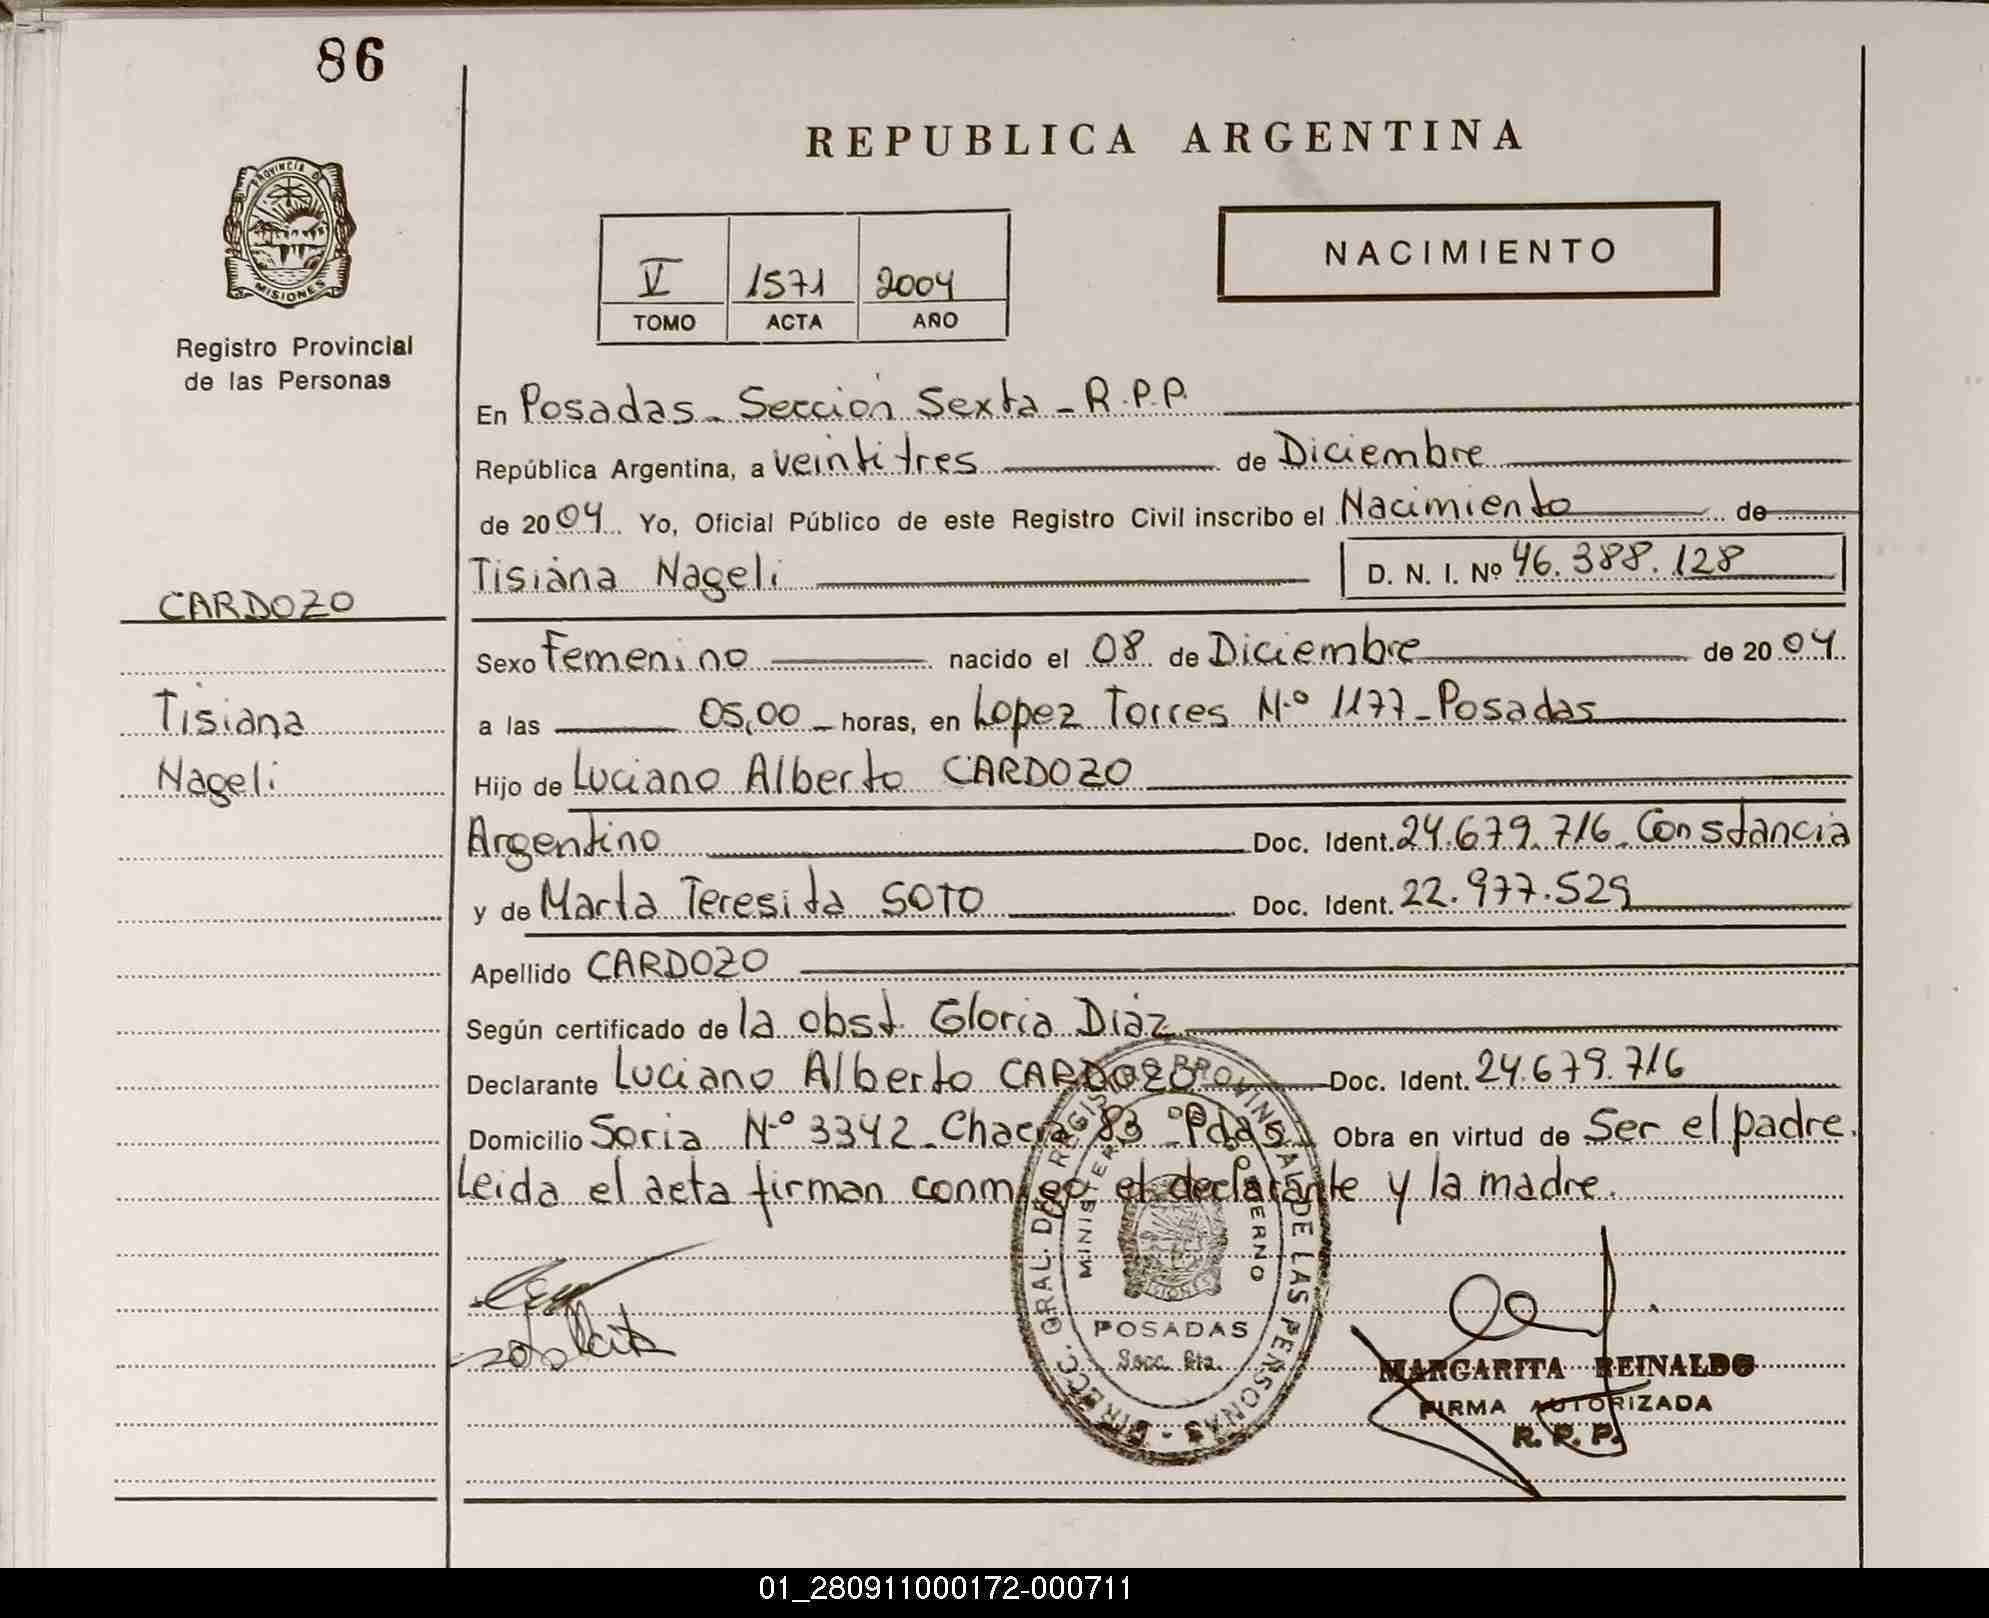 86
REPUBLICA ARGENTINA
PROVINCIA D
MISIONES
NACIMIENTO
V 1571 2004
TOMO ACTA AÑO
Registro Provincial
de las Personas
En Posadas - Sección Sexta - R.P.P.
República Argentina, a veintitres de Diciembre
de 2004 Yo, Oficial Público de este Registro Civil inscribo el Nacimiento de
Tisiana Nageli D. N. I. Nº 46.388.128
CARDOZO
Sexo Femenino nacido el 08 de Diciembre de 2004
Tisiana
a las 05,00 horas, en Lopez Torres Nº 1177 - Posadas
Nageli
Hijo de Luciano Alberto CARDOZO
Argentino Doc. Ident. 24.679.716. Constancia
y de Marta Teresita SOTO Doc. Ident. 22.977.529
Apellido CARDOZO
Según certificado de la obst. Gloria Diaz
Declarante Luciano Alberto CARDOZO Doc. Ident. 24.679.716
Domicilio Soria Nº 3342 - Chacra 83 - Pdas. Obra en virtud de Ser el padre.
Leida el acta firman conmigo el declarante y la madre.
DIRECC. GRAL. DEL REGISTRO PROVINCIAL DE LAS PERSONAS
MINISTERIO DE GOBIERNO
MISIONES
POSADAS
Secc. 6ta.
MARGARITA REINALDO
FIRMA AUTORIZADA
R. P. P.
01_280911000172-000711